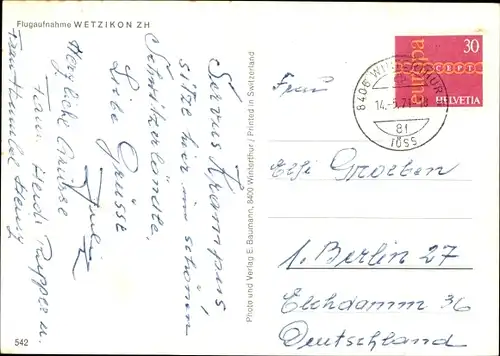 Flugaufnahme WETZIKON ZH
Servus Krampus,
sitze hier im schönen
Schwitzerländle.
Liebe Grüsse
Herzliche Grüsse
Fam. Heidi u.
Frau
542
Photo und Verlag E. Baumann, 8400 Winterthur / Printed in Switzerland
30
europa
CEPT
HELVETIA
8406 WINTERTHUR
14.-5.71-18
81
TÖSS
Frau
Elfi Groeben
1. Berlin 27
Eschdamm 36
Deutschland